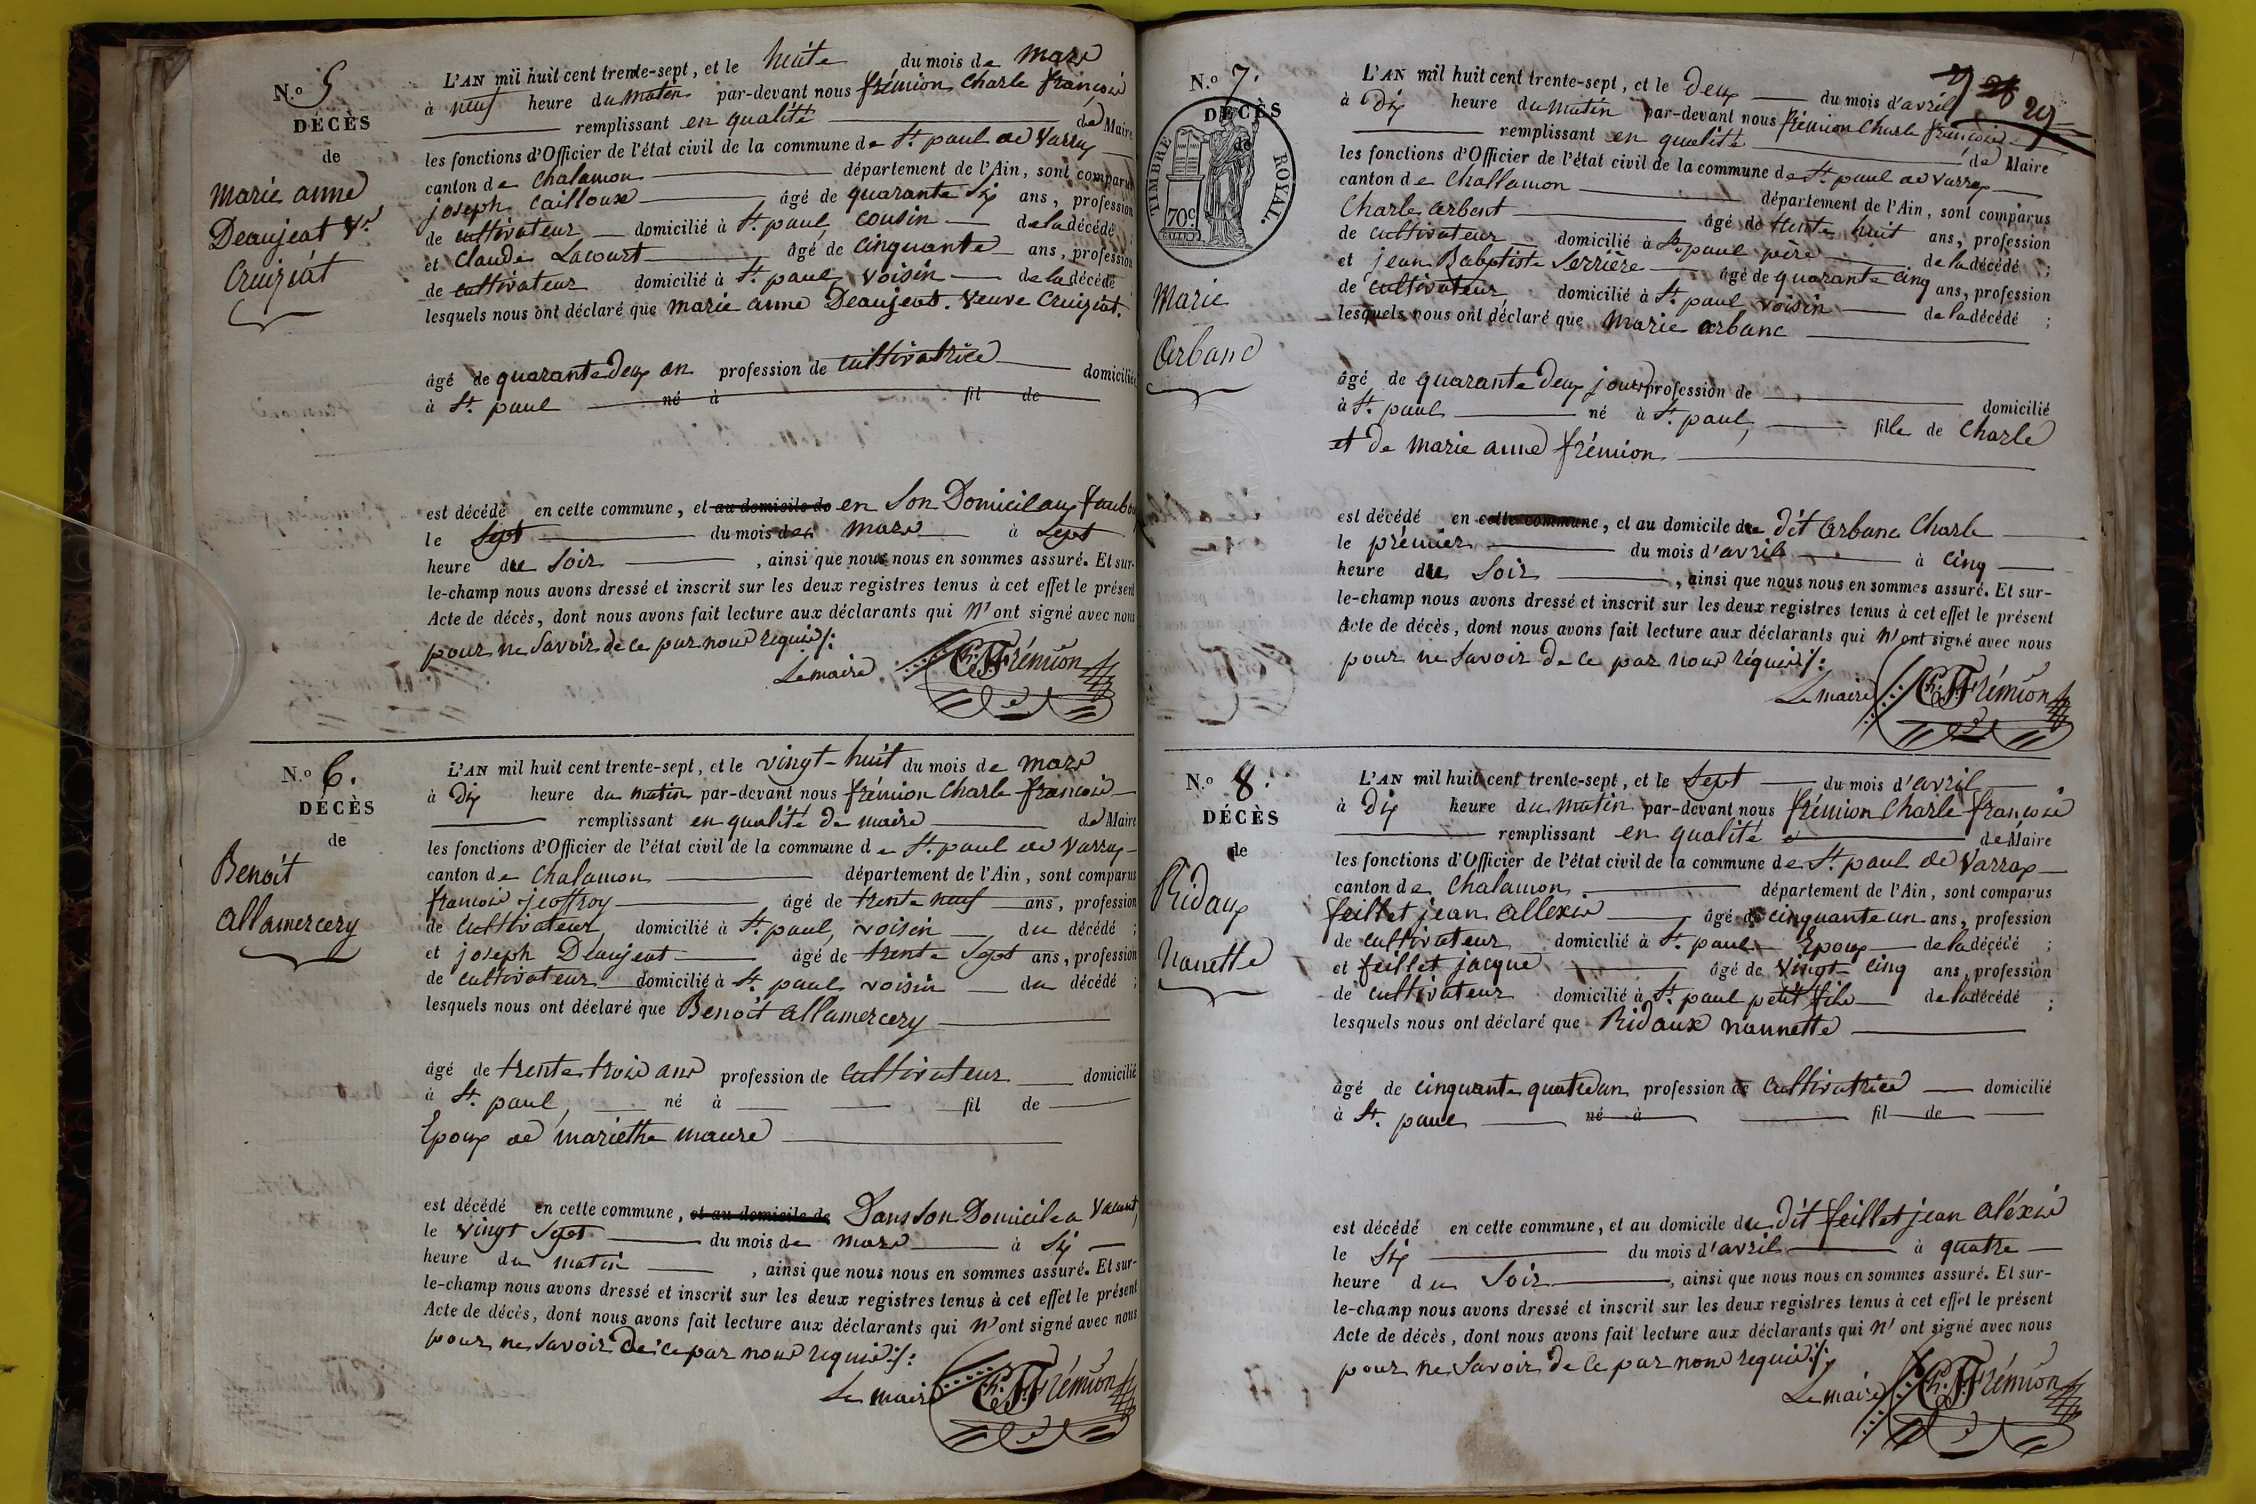 N.º 5
DÉCÈS
de
Marie anne
Deaujeat Vᵉ
Cruiziat
L'AN mil huit cent trente-sept, et le huite du mois de mars
à neuf heure du matin par-devant nous frémion Charle françois
remplissant en qualité de Maire
les fonctions d'Officier de l'état civil de la commune de St. paul de Varrax
canton de Chalamon département de l'Ain, sont comparus
joseph Cailloux âgé de quarante Six ans, profession
de cultivateur domicilié à St. paul, cousin de la décédé ;
et Claude Lacourt âgé de cinquante ans, profession
de cultivateur domicilié à St. paul, voisin de la décédé
lesquels nous ont déclaré que marie anne Deaujeat. Veuve Cruiziat.
âgé de quarante Deux an profession de cultivatrice domicilié
à St. paul né à fil de
est décédé en cette commune, et au domicile de en Son Domicil aux faubou
le Sept du mois de mars à Sept
heure du Soir , ainsi que nous nous en sommes assuré. Et sur-
le-champ nous avons dressé et inscrit sur les deux registres tenus à cet effet le présent
Acte de décès, dont nous avons fait lecture aux déclarants qui N'ont signé avec nous
pour ne Savoir de ce par nous requis /:
Le maire Ch. F. Frémion
N.º 6.
DÉCÈS
de
Benoit
allamercery
L'AN mil huit cent trente-sept, et le vingt-huit du mois de mars
à Dix heure du matin par-devant nous frémion Charle françois
remplissant en qualité de maire de Maire
les fonctions d'Officier de l'état civil de la commune de St. paul de Varrax
canton de Chalamon département de l'Ain, sont comparus
françois jeoffroy âgé de trente neuf ans, profession
de cultivateur domicilié à St. paul, voisin du décédé ;
et joseph Deaujeat âgé de trente Sept ans, profession
de cultivateur domicilié à St. paul voisin du décédé ;
lesquels nous ont déclaré que Benoit allamercery
âgé de trente trois ans profession de cultivateur domicilié
à St. paul, né à fil de
Epoux de mariethe maure
est décédé en cette commune, et au domicile de Dans Son Domicile a Vacant
le vingt Sept du mois de mars à Six
heure du matin , ainsi que nous nous en sommes assuré. Et sur-
le-champ nous avons dressé et inscrit sur les deux registres tenus à cet effet le présent
Acte de décès, dont nous avons fait lecture aux déclarants qui N'ont signé avec nous
pour ne Savoir de ce par nous requis /:
Le maire Ch. F. Frémion
29 28 29
N.º 7.
DÉCÈS
de
TIMBRE ROYAL.
70 c
Marie
Arbanc
L'AN mil huit cent trente-sept, et le deux du mois d'avril
à Dix heure du matin par-devant nous frémion Charle françois
remplissant en qualité de Maire
les fonctions d'Officier de l'état civil de la commune de St. paul de Varrax
canton de Challamon département de l'Ain, sont comparus
Charle arbent âgé de trente huit ans, profession
de cultivateur domicilié à St. paul père de la décédé ;
et jean Babptiste Serrière âgé de quarante cinq ans, profession
de cultivateur domicilié à St. paul voisin de la décédé ;
lesquels nous ont déclaré que Marie arbanc
âgé de quarante Deux jours profession de domicilié
à St. paul né à St. paul, fille de Charle
et De Marie anne frémion
est décédé en cette commune, et au domicile du dit Arbanc Charle
le prémier du mois d'avril à Cinq
heure du Soir , ainsi que nous nous en sommes assuré. Et sur-
le-champ nous avons dressé et inscrit sur les deux registres tenus à cet effet le présent
Acte de décès, dont nous avons fait lecture aux déclarants qui N'ont signé avec nous
pour ne Savoir De ce par nous réquis /:
Le maire Ch. F. Frémion
N.º 8.
DÉCÈS
de
Ridaux
Nanette
L'AN mil huit cent trente-sept, et le Sept du mois d'avril
à Dix heure du Matin par-devant nous frémion Charle françois
remplissant en qualité de Maire
les fonctions d'Officier de l'état civil de la commune de St. paul de Varrax
canton de Chalamon département de l'Ain, sont comparus
feillet jean allexis âgé de cinquante un ans, profession
de cultivateur domicilié à St. paul Epoux de la décédé ;
et feillet jacque âgé de vingt cinq ans, profession
de cultivateur domicilié à St. paul petit fils de la décédé ;
lesquels nous ont déclaré que Ridaux nannette
âgé de cinquante quatre an profession de cultivatrice domicilié
à St. paul né à fil de
est décédé en cette commune, et au domicile du dit feillet jean aléxis
le Six du mois d'avril à quatre
heure du Soir , ainsi que nous nous en sommes assuré. Et sur-
le-champ nous avons dressé et inscrit sur les deux registres tenus à cet effet le présent
Acte de décès, dont nous avons fait lecture aux déclarants qui N'ont signé avec nous
pour ne Savoir de ce par nous requis /:
Le maire Ch. F. Frémion